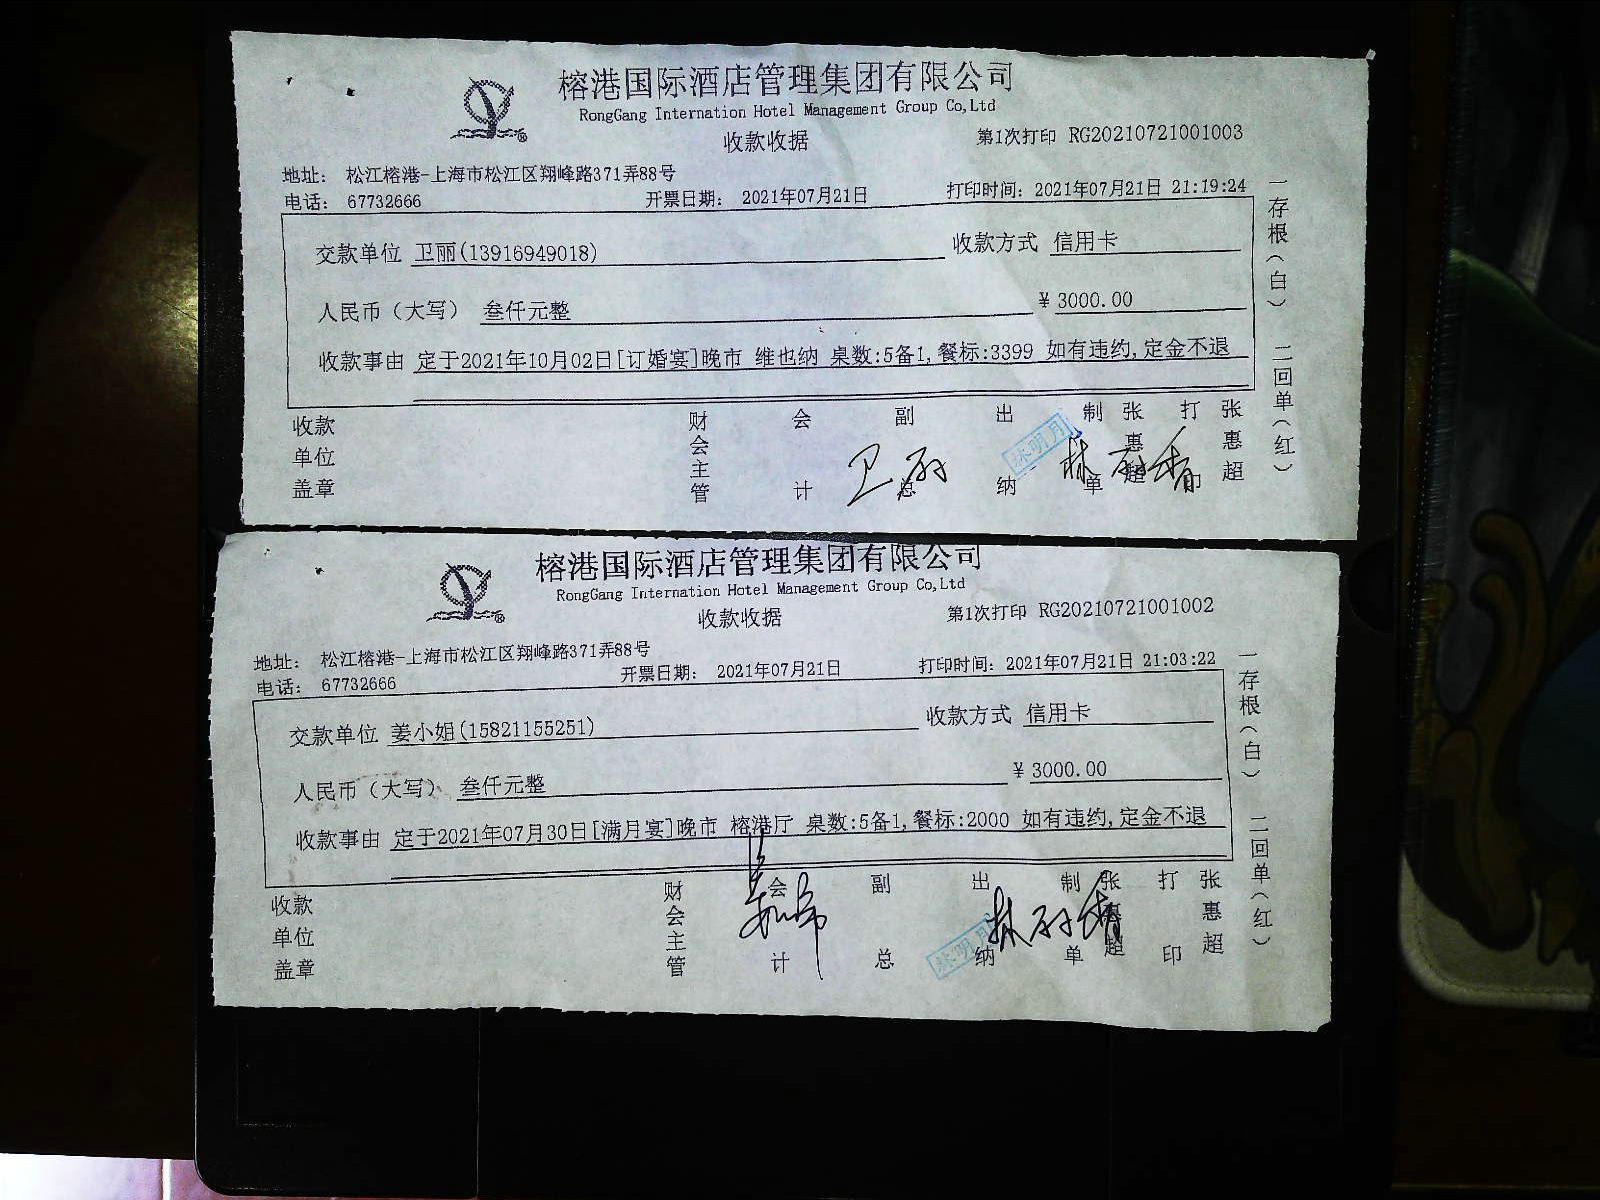 榕港国际酒店管理集团有限公司
RongGang Internation Hotel Management Group Co,Ltd
收款收据
第1次打印 RG20210721001003
地址： 松江榕港-上海市松江区翔峰路371弄88号
电话： 67732666 开票日期： 2021年07月21日 打印时间：2021年07月21日 21:19:24
交款单位 卫丽(13916949018) 收款方式 信用卡
人民币（大写） 叁仟元整 ¥ 3000.00
收款事由 定于2021年10月02日[订婚宴]晚市 维也纳 桌数:5备1,餐标:3399 如有违约,定金不退
收款单位盖章 财会主管 会计 副总 出纳 制单 张惠超 打印 张惠超
一存根（白） 二回单（红）
卫丽
林明月
榕港国际酒店管理集团有限公司
RongGang Internation Hotel Management Group Co,Ltd
收款收据
第1次打印 RG20210721001002
地址： 松江榕港-上海市松江区翔峰路371弄88号
电话： 67732666 开票日期： 2021年07月21日 打印时间：2021年07月21日 21:03:22
交款单位 姜小姐(15821155251) 收款方式 信用卡
人民币（大写） 叁仟元整 ¥ 3000.00
收款事由 定于2021年07月30日[满月宴]晚市 榕港厅 桌数:5备1,餐标:2000 如有违约,定金不退
收款单位盖章 财会主管 会计 副总 出纳 制单 张惠超 打印 张惠超
一存根（白） 二回单（红）
林明月